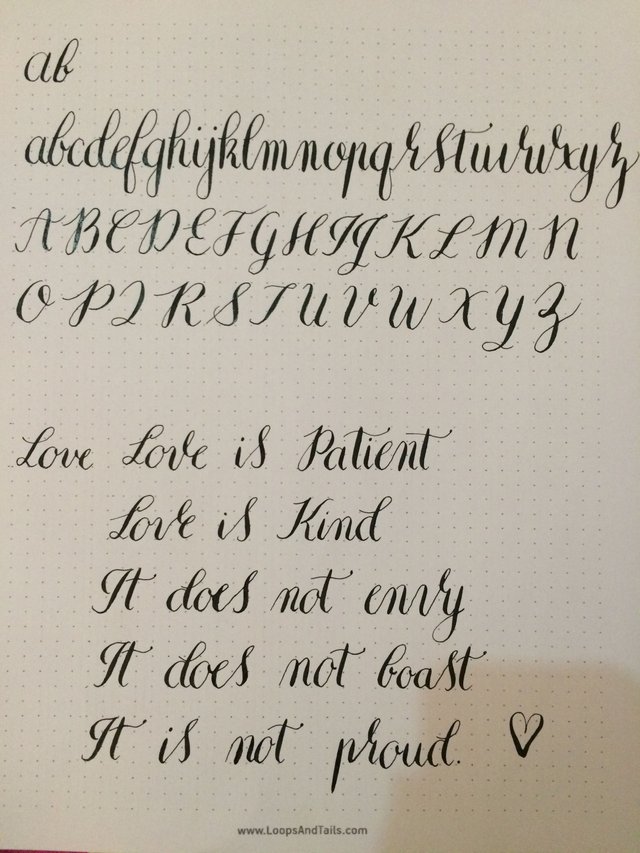 ab
abcdefghijklmnopqrstuvwxyz
ABCDEFGHIJKLMN
OPQRSTUVWXYZ
Love Love is Patient
Love is Kind
It does not envy
It does not boast
It is not proud.
www.LoopsAndTails.com